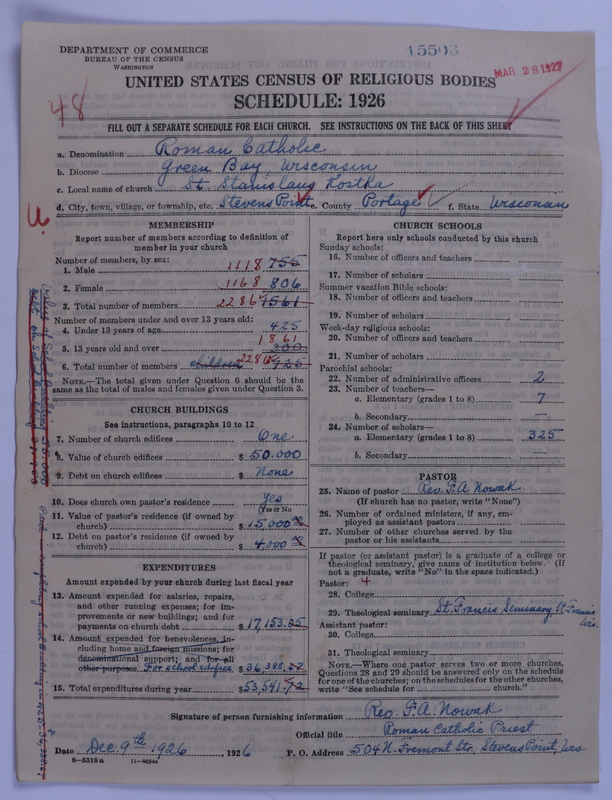 DEPARTMENT OF COMMERCE
BUREAU OF THE CENSUS
WASHINGTON
15503
MAR 28 1927
UNITED STATES CENSUS OF RELIGIOUS BODIES
SCHEDULE: 1926
48
FILL OUT A SEPARATE SCHEDULE FOR EACH CHURCH. SEE INSTRUCTIONS ON THE BACK OF THIS SHEET
a. Denomination Roman Catholic
b. Diocese Green Bay, Wisconsin
c. Local name of church St. Stanislaus Kostka
d. City, town, village, or township, etc. Stevens Point e. County Portage f. State Wisconsin
MEMBERSHIP
Report number of members according to definition of member in your church
Number of members, by sex:
1. Male 1118 755
2. Female 1168 806
3. Total number of members 2286 1561
Number of members under and over 13 years old:
4. Under 13 years of age 425
5. 13 years old and over 1861 300
6. Total number of members children 2286 725
NOTE.—The total given under Question 6 should be the same as the total of males and females given under Question 3.
CHURCH BUILDINGS
See instructions, paragraphs 10 to 12
7. Number of church edifices One
8. Value of church edifices $ 50.000
9. Debt on church edifices $ None
10. Does church own pastor's residence Yes
(Yes or No)
11. Value of pastor's residence (if owned by church) $ 15,000
12. Debt on pastor's residence (if owned by church) $ 4,000
EXPENDITURES
Amount expended by your church during last fiscal year
13. Amount expended for salaries, repairs, and other running expenses; for improvements or new buildings; and for payments on church debt $ 17,153.25
14. Amount expended for benevolences, including home and foreign missions; for denominational support; and for all other purposes. For school edifice $ 36,388.
15. Total expenditures during year $ 53,541.72
CHURCH SCHOOLS
Report here only schools conducted by this church
Sunday schools:
16. Number of officers and teachers
17. Number of scholars
Summer vacation Bible schools:
18. Number of officers and teachers
19. Number of scholars
Week-day religious schools:
20. Number of officers and teachers
21. Number of scholars
Parochial schools:
22. Number of administrative officers 2
23. Number of teachers—
a. Elementary (grades 1 to 8) 7
b. Secondary —
24. Number of scholars—
a. Elementary (grades 1 to 8) 325
b. Secondary —
PASTOR
25. Name of pastor Rev. F. A. Nowak
(If church has no pastor, write "None")
26. Number of ordained ministers, if any, employed as assistant pastors
27. Number of other churches served by the pastor or his assistants
If pastor (or assistant pastor) is a graduate of a college or theological seminary, give name of institution below. (If not a graduate, write "No" in the space indicated.)
Pastor: 4
28. College
29. Theological seminary St. Francis Seminary, St. Francis Wis.
Assistant pastor:
30. College
31. Theological seminary
NOTE.—Where one pastor serves two or more churches, Questions 28 and 29 should be answered only on the schedule for one of the churches; on the schedules for the other churches, write "See schedule for church."
Signature of person furnishing information Rev. F. A. Nowak
Official title Roman Catholic Priest
Date Dec. 9th 1926, 1926 P. O. Address 504 N. Fremont Str. Stevens Point, Wis
8—5518 a